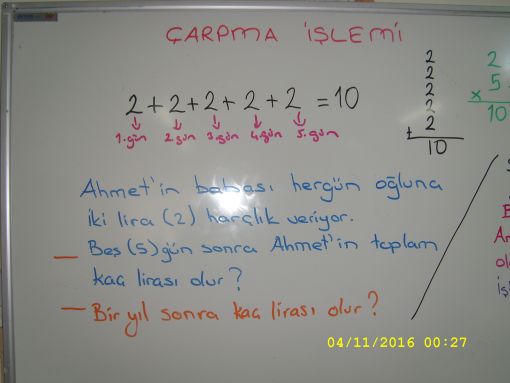 ÇARPMA İŞLEMİ
2 + 2 + 2 + 2 + 2 = 10
1.gün 2.gün 3.gün 4.gün 5.gün
2
2
2
2
+ 2
10
2
5
× 
10
Ahmet'in babası hergün oğluna
iki lira (2) harçlık veriyor.
— Beş (5) gün sonra Ahmet'in toplam
kaç lirası olur?
— Bir yıl sonra kaç lirası olur?
04/11/2016 00:27